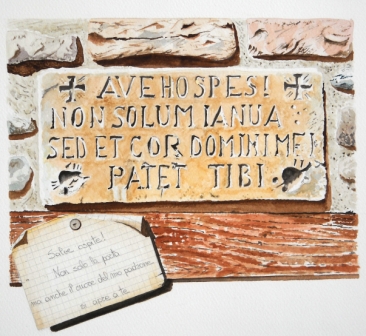 AVE HOSPES!
NON SOLUM IANUA :
SED ET COR DOMINI MEI
PATET TIBI
Salve ospite!
Non solo la porta
ma anche il cuore del mio padrone
si apre a te